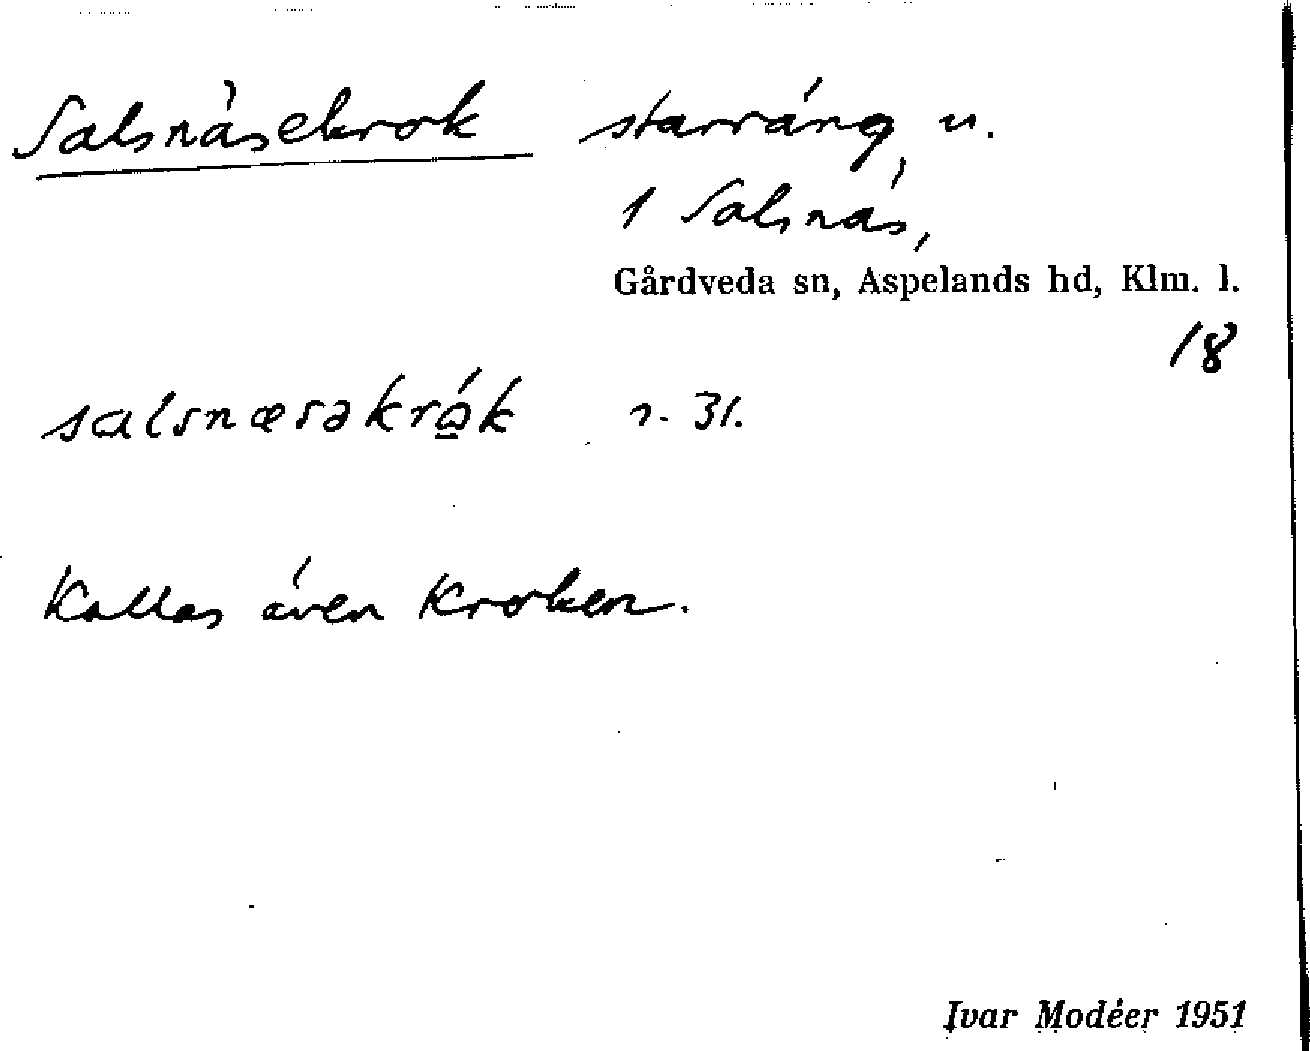 Salsnäsekrok starräng u.
1 Salsnäs,
Gårdveda sn, Aspelands hd, Klm. l.
18
salsnæsəkrók r. 31.
Kallas även Kroken.
Ivar Modéer 1951